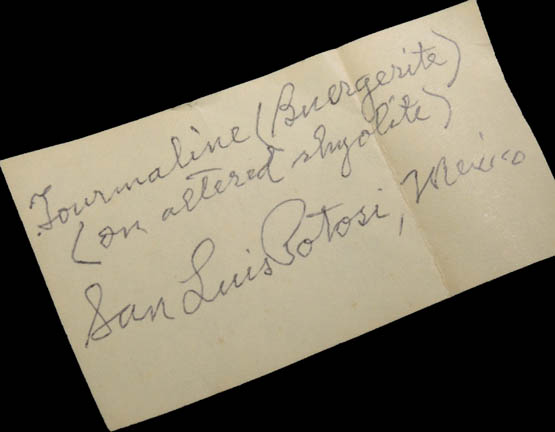 Tourmaline (Buergerite)
(on altered rhyolite)
San Luis Potosi, Mexico